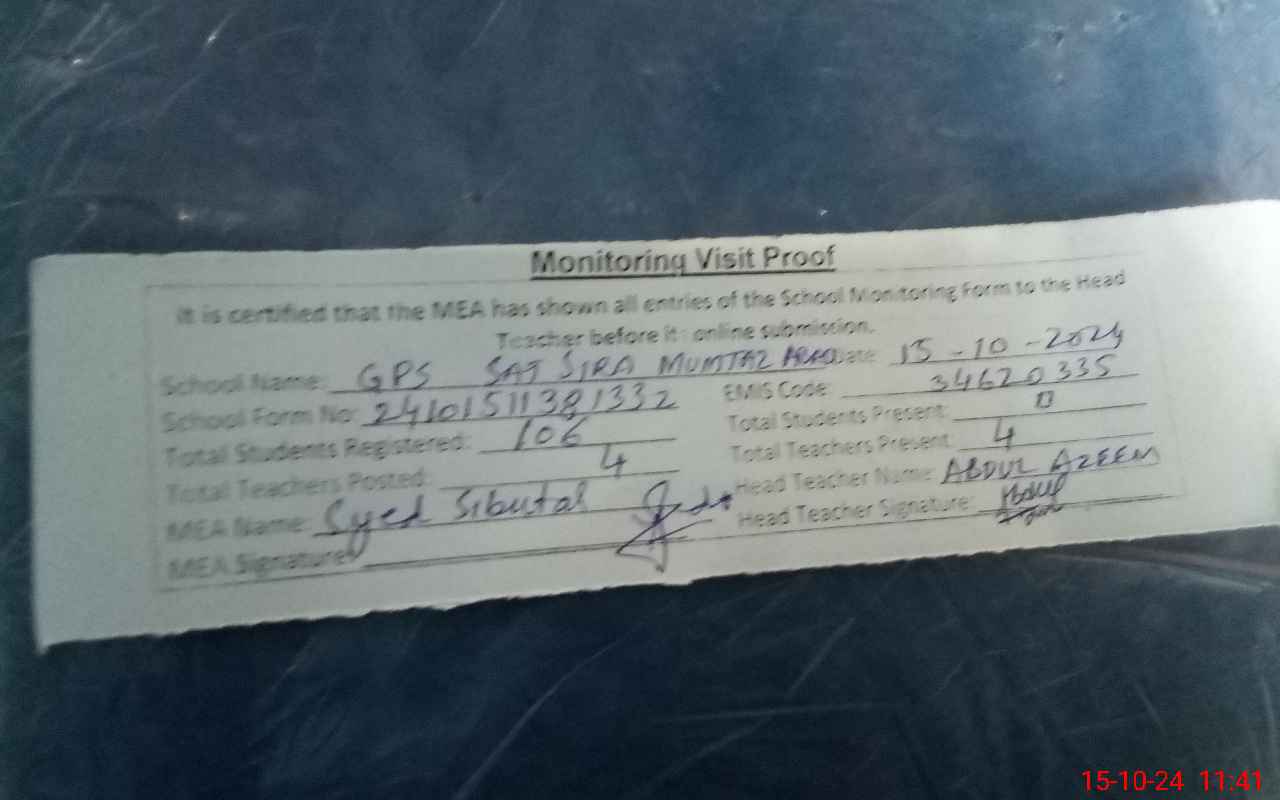 Monitoring Visit Proof
It is certified that the MEA has shown all entries of the School Monitoring Form to the Head
Teacher before it online submission.
School Name: GPS SAT SIRA MUMTAZ ABAD Date: 15-10-2024
School Form No: 24101511381332 EMIS Code: 34620335
Total Students Registered: 106 Total Students Present: 0
Total Teachers Posted: 4 Total Teachers Present: 4
MEA Name: Syed Sibutal Head Teacher Name: ABDUL AZEEM
MEA Signature: Head Teacher Signature: Abdul
15-10-24 11:41